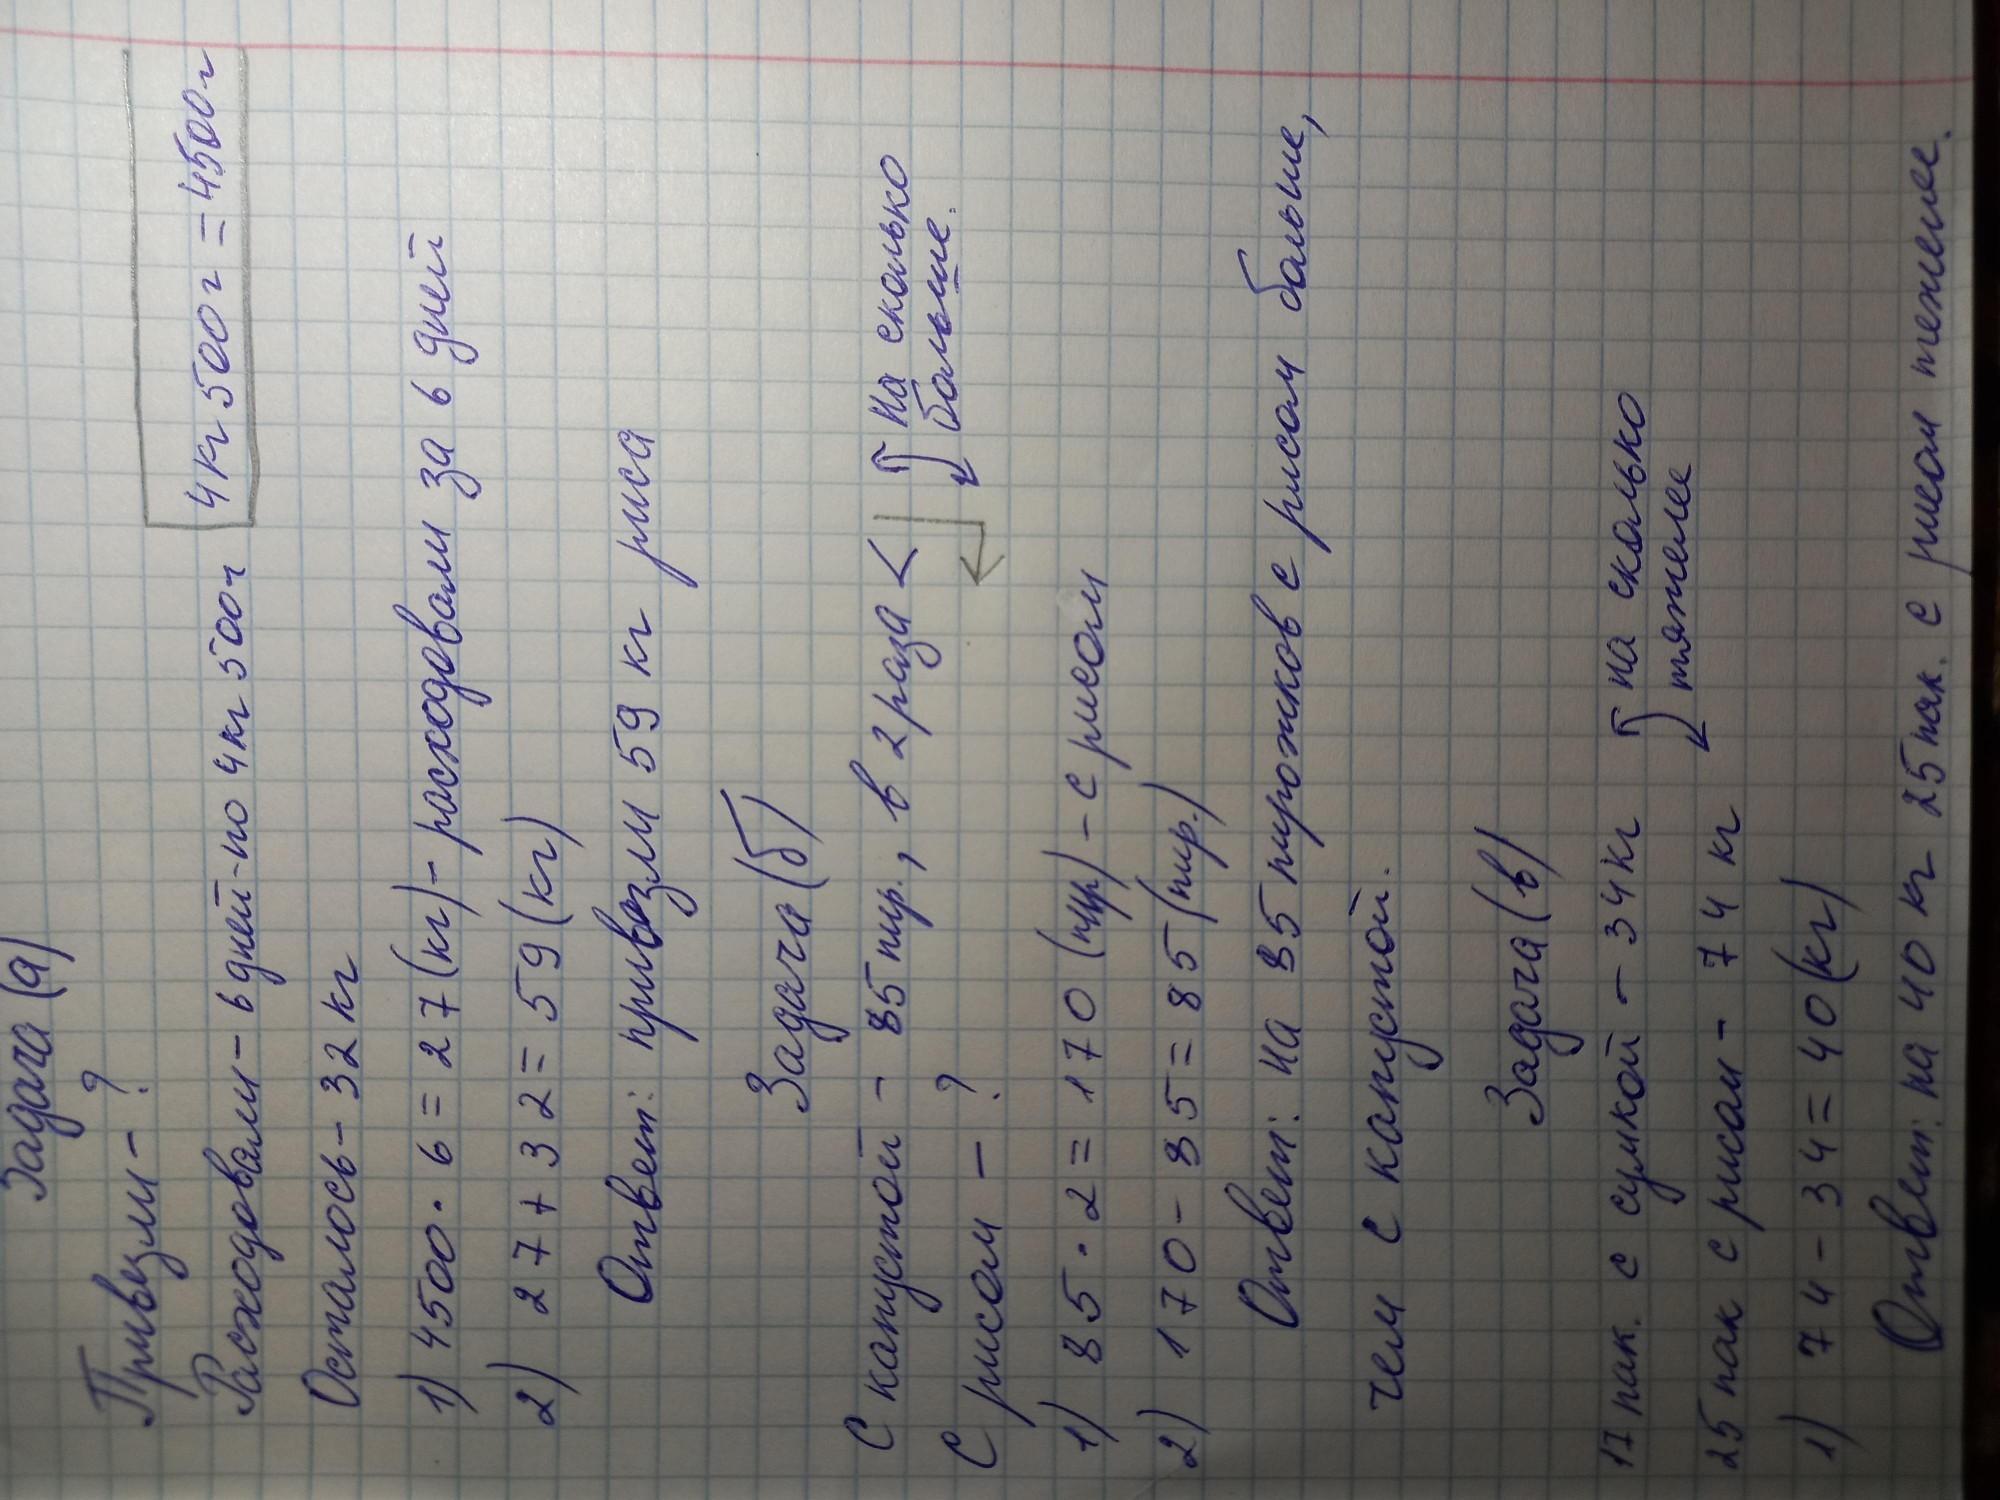 Задача (а)
Привезли - ?
Расходовали - 6 дней - по 4 кг 500 г 4 кг 500 г = 4500 г
Осталось - 32 кг
1) 4500 · 6 = 27 (кг) - расходовали за 6 дней
2) 27 + 32 = 59 (кг)
Ответ: привезли 59 кг риса
Задача (б)
С капустой - 85 пир., в 2 раза < На сколько
С рисом - ? больше.
1) 85 · 2 = 170 (пир) - с рисом
2) 170 - 85 = 85 (пир.)
Ответ: на 85 пирожков с рисом больше,
чем с капустой.
Задача (в)
17 пак. с сумкой - 34 кг на сколько
25 пак с рисом - 74 кг тяжелее
1) 74 - 34 = 40 (кг)
Ответ: на 40 кг 25 пак. с рисом тежелее.